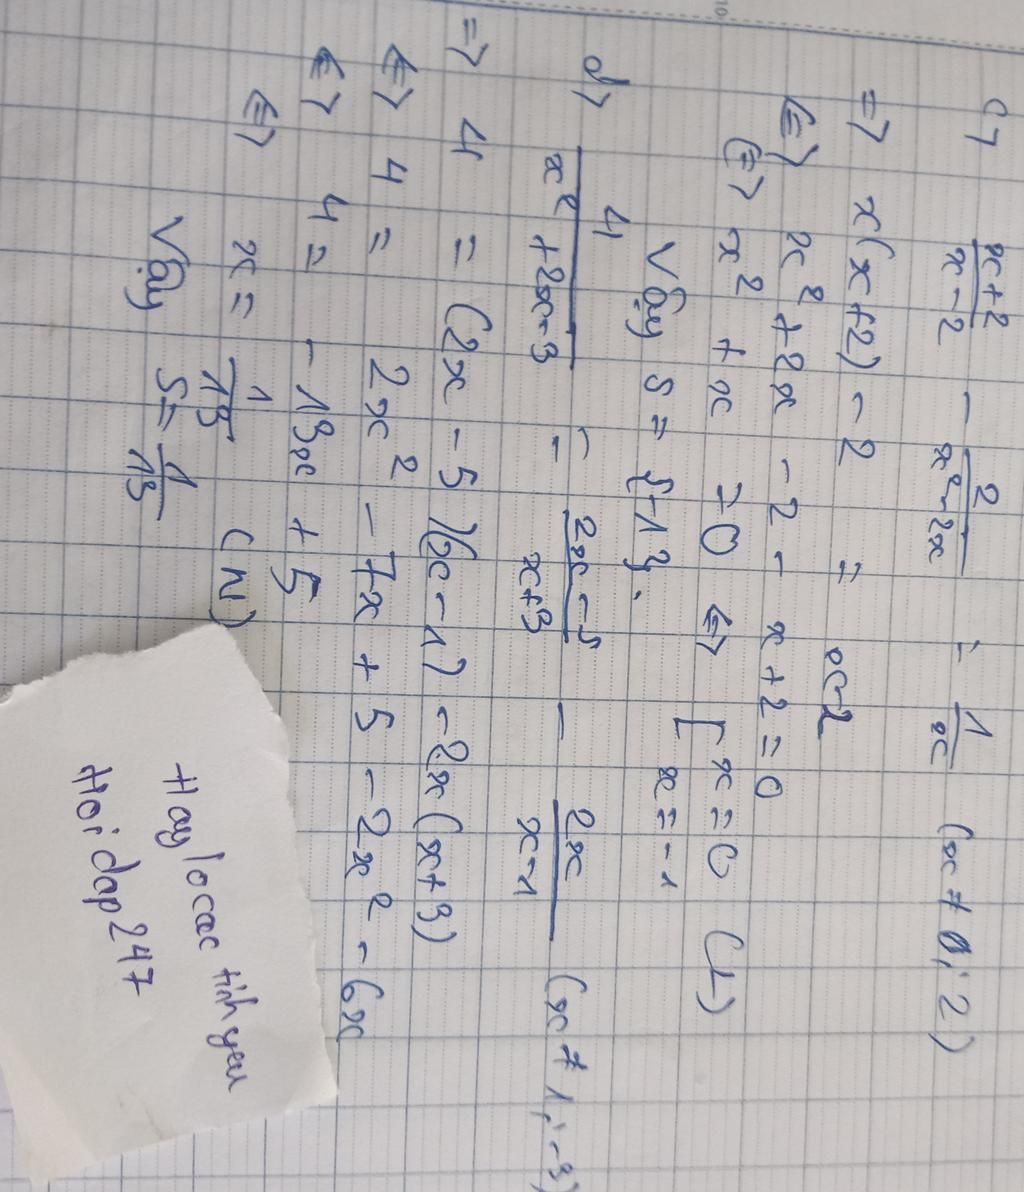 c) \frac{x+2}{x-2} - \frac{2}{x^2-2x} = \frac{1}{x} (x ≠ 0; 2)
=> x(x+2) - 2 = x-2
<=> x^2 + 2x - 2 - x + 2 = 0
<=> x^2 + x = 0 <=> [ x = 0 (L)
x = -1
Vậy S = {-1}.
d) \frac{4}{x^2+2x-3} = \frac{2x-5}{x+3} - \frac{2x}{x-1} (x ≠ 1; -3)
=> 4 = (2x - 5)(x - 1) - 2x(x+3)
<=> 4 = 2x^2 - 7x + 5 - 2x^2 - 6x
<=> 4 = -13x + 5
<=> x = \frac{1}{13} (N)
Vậy S = \frac{1}{13}
Haylocac tinhyeu
Hoidap247